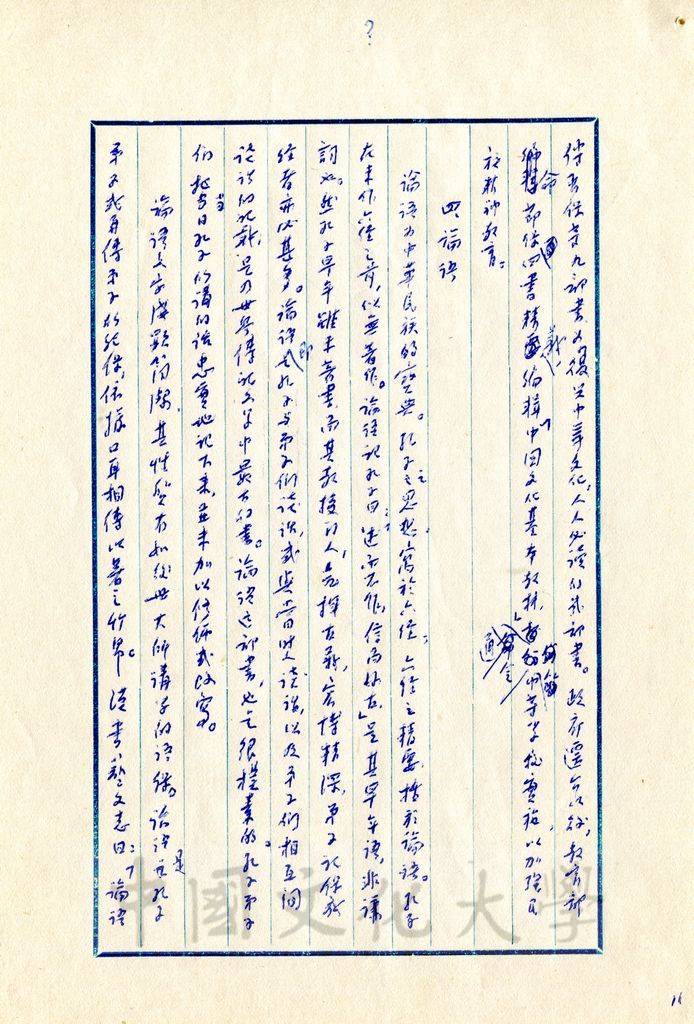 ?
部書為復興中華文化，人人必讀的部書。政府遷台以後，教育部
命編輯四書精義「中國文化基本教材」，通令中等學校實施，以加強民
族精神教育：
四、論語
論語為中華民族的寶典。孔子之思想寓於六經；六經之精要，括於論語。孔子
在未作六經之前，似無著作。論語記孔子曰：「述而不作，信而好古」是其早年語，非謙
詞也。然孔子早年雖未著書，而其教授門人，宏博精深，弟子記保
者亦必甚多。論語即孔子與弟子們談話，或與當時人談話，以及弟子們相互間
談話的記載，是力世界傳記文學中最古的書。論語這部書，也是很樸素的。孔子弟子
們把當日孔子所講的話忠實地記下來，並未加以修飾或改寫。
論語文字淺顯簡潔，其性質有如後世大師講學的語錄。論語是孔子
弟子或再傳弟子的記錄，依據口耳相傳以著之竹帛。漢書藝文志曰：「論語
中國文化大學